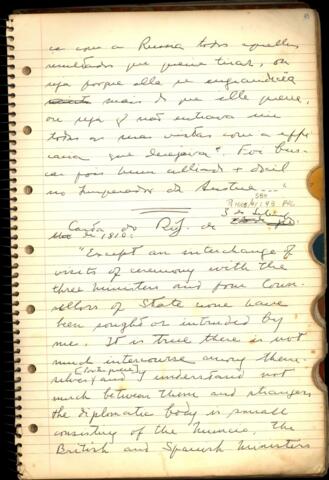 ca com a Russia todos aquelles
resultados que queria tirar, ou
seja porque ella se engrandecia
mais do que elle queria,
ou seja q não entrava em
todas as suas vistas com a effi
cacia que desejava". Foi bus-
car pois bem alliado + docil
no Imperador da Austria..."
Carta do Rj. de
1810:
"Except an interchange of
visits of ceremony with the
three ministers and four Coun-
sellors of State none have
been sought or intruded by
me. It is true there is not
much intercourse among them-
selves (and I understand not
much between them and strangers,
the diplomatic body is small
consisting of the Nuncio, the
British and Spanish Ministers